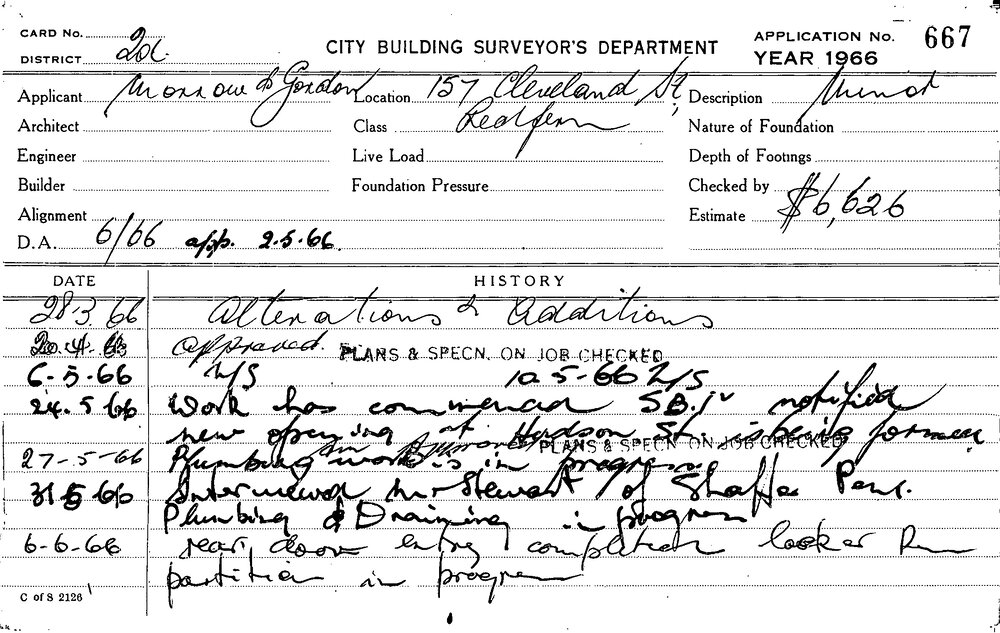 CARD No.
DISTRICT 2d.
CITY BUILDING SURVEYOR'S DEPARTMENT
APPLICATION No. 667
YEAR 1966
Applicant Morrow & Gordon
Location 157 Cleveland St,
Redfern
Description Minor
Architect
Class
Nature of Foundation
Engineer
Live Load
Depth of Footings
Builder
Foundation Pressure
Checked by
Alignment
Estimate $6,626
D.A. 6/66 app. 2.5.66.
DATE HISTORY
28.3.66 Alterations & Additions
20.4.66 approved. PLANS & SPECN. ON JOB CHECKED
6-5-66 W/S 10.5-66 W/S
24.5.66 Work has commenced SB. notified
new opening at Hudson St. is being formed
PLANS & SPECN ON JOB CHECKED
27-5-66 Plumbing work is in progress
31-5-66 Interviewed Mr Stewart of
Plumbing & Draining in progress
6-6-66 rear door entry completed locker Rm
partition in progress
C of S 2126